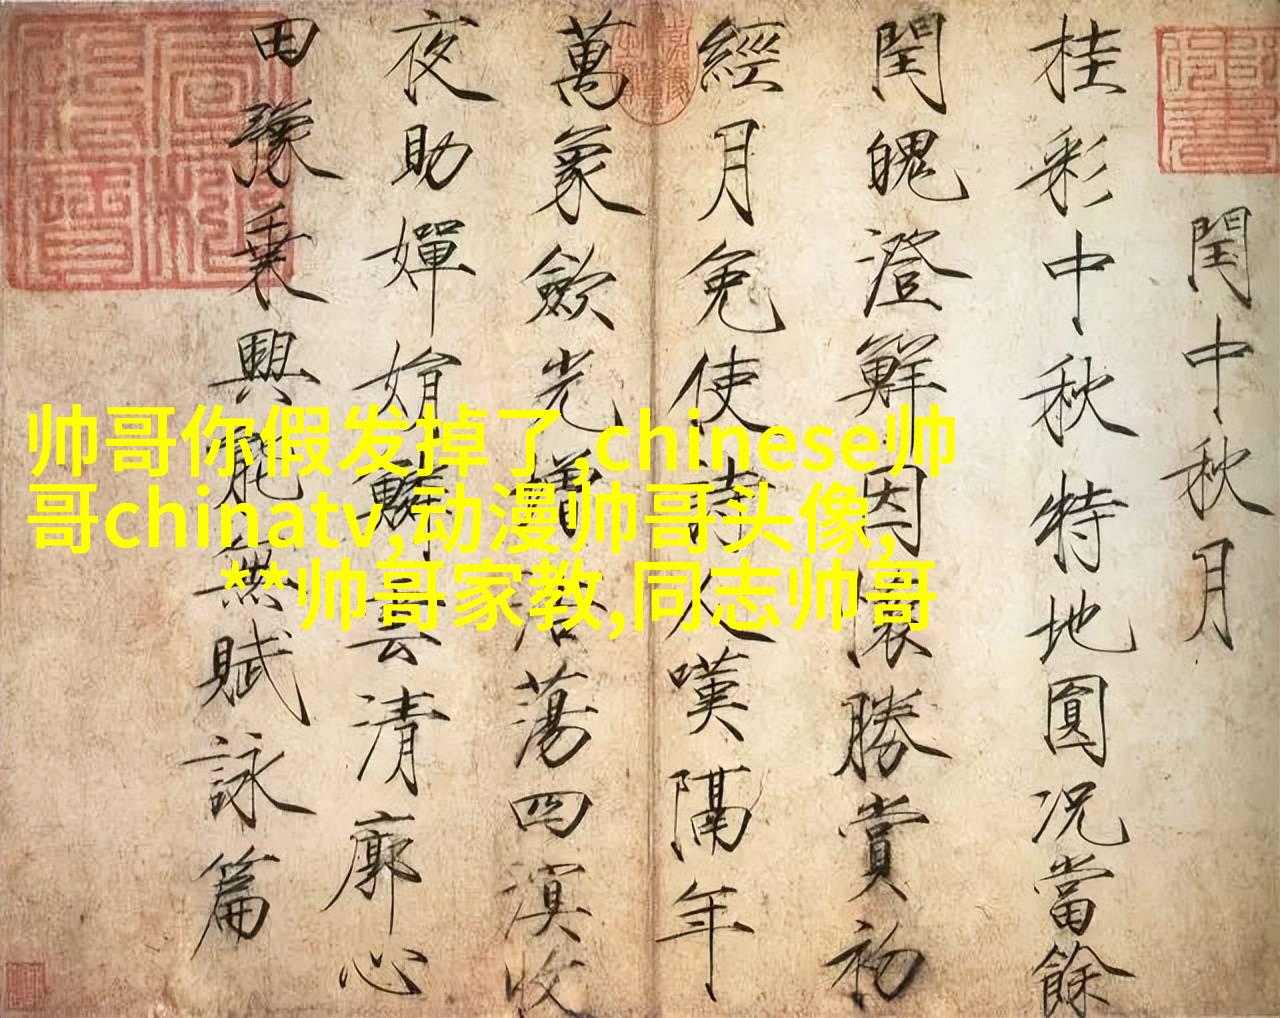 閏中秋月
桂彩中秋特地圓况當餘
閏魄澄鮮因懷勝賞初
經月免使詩人嘆隔年
萬象歛光增浩蕩四溟收
夜助嬋娟鱗云清廓心
田豫乗興能無賦詠篇
帅哥你假发掉了,chinese帅
哥chinatv,动漫帅哥头像,
**帅哥家教,同志帅哥